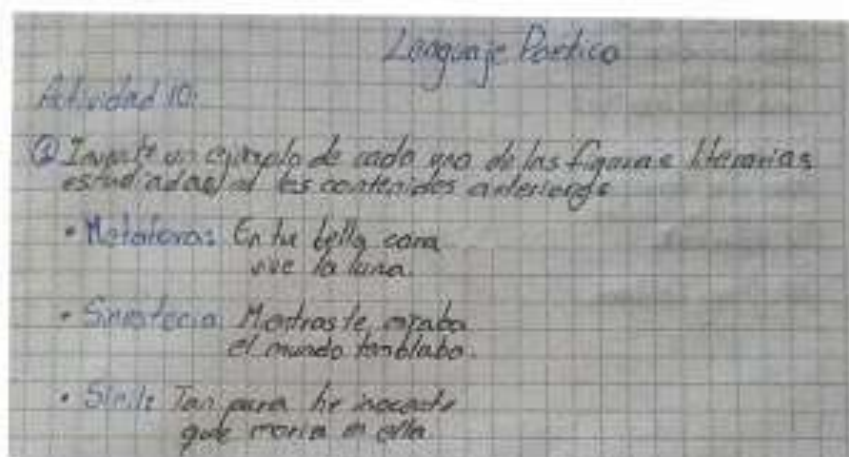 Lenguaje Poético
Actividad 10:
① Invente un ejemplo de cada una de las figuras literarias
estudiadas los contenidos anteriores
• Metáfora: En tu bella cara
vive la luna.
• Sinestecia: Mientras te miraba
el mundo temblaba.
• Simil: Tan pura tu
que moria en ella